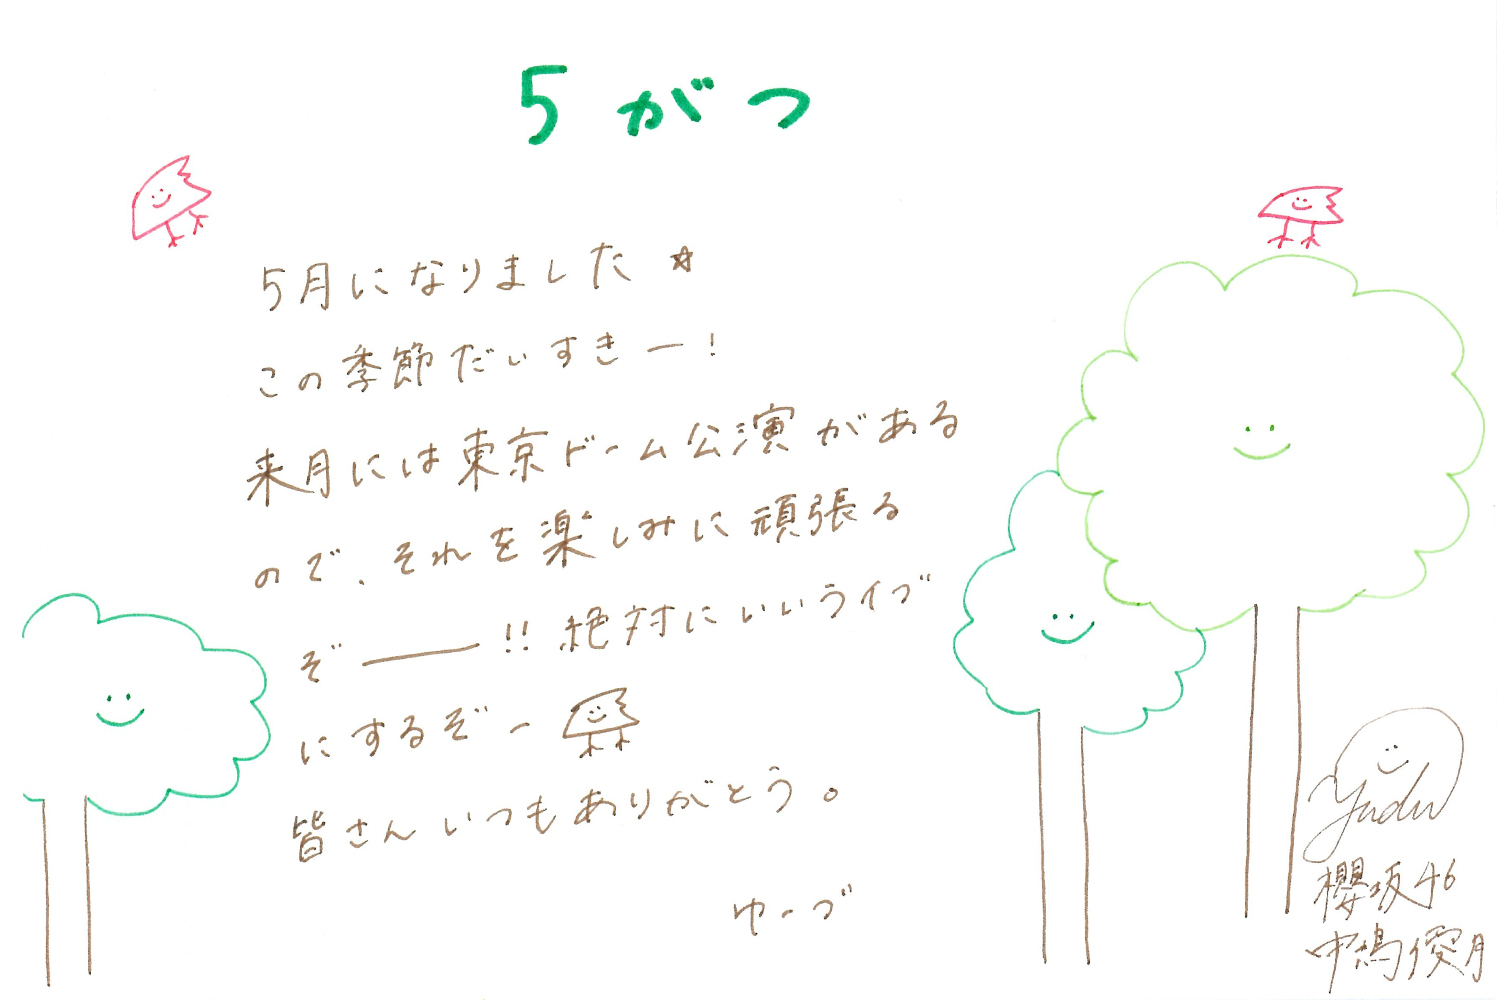 5がつ
5月になりました☆
この季節だいすきー！
来月には東京ドーム公演がある
ので、それを楽しみに頑張る
ぞー!! 絶対にいいライブ
にするぞー
皆さんいつもありがとう。
ゆーづ
Yudu
櫻坂46
中嶋優月